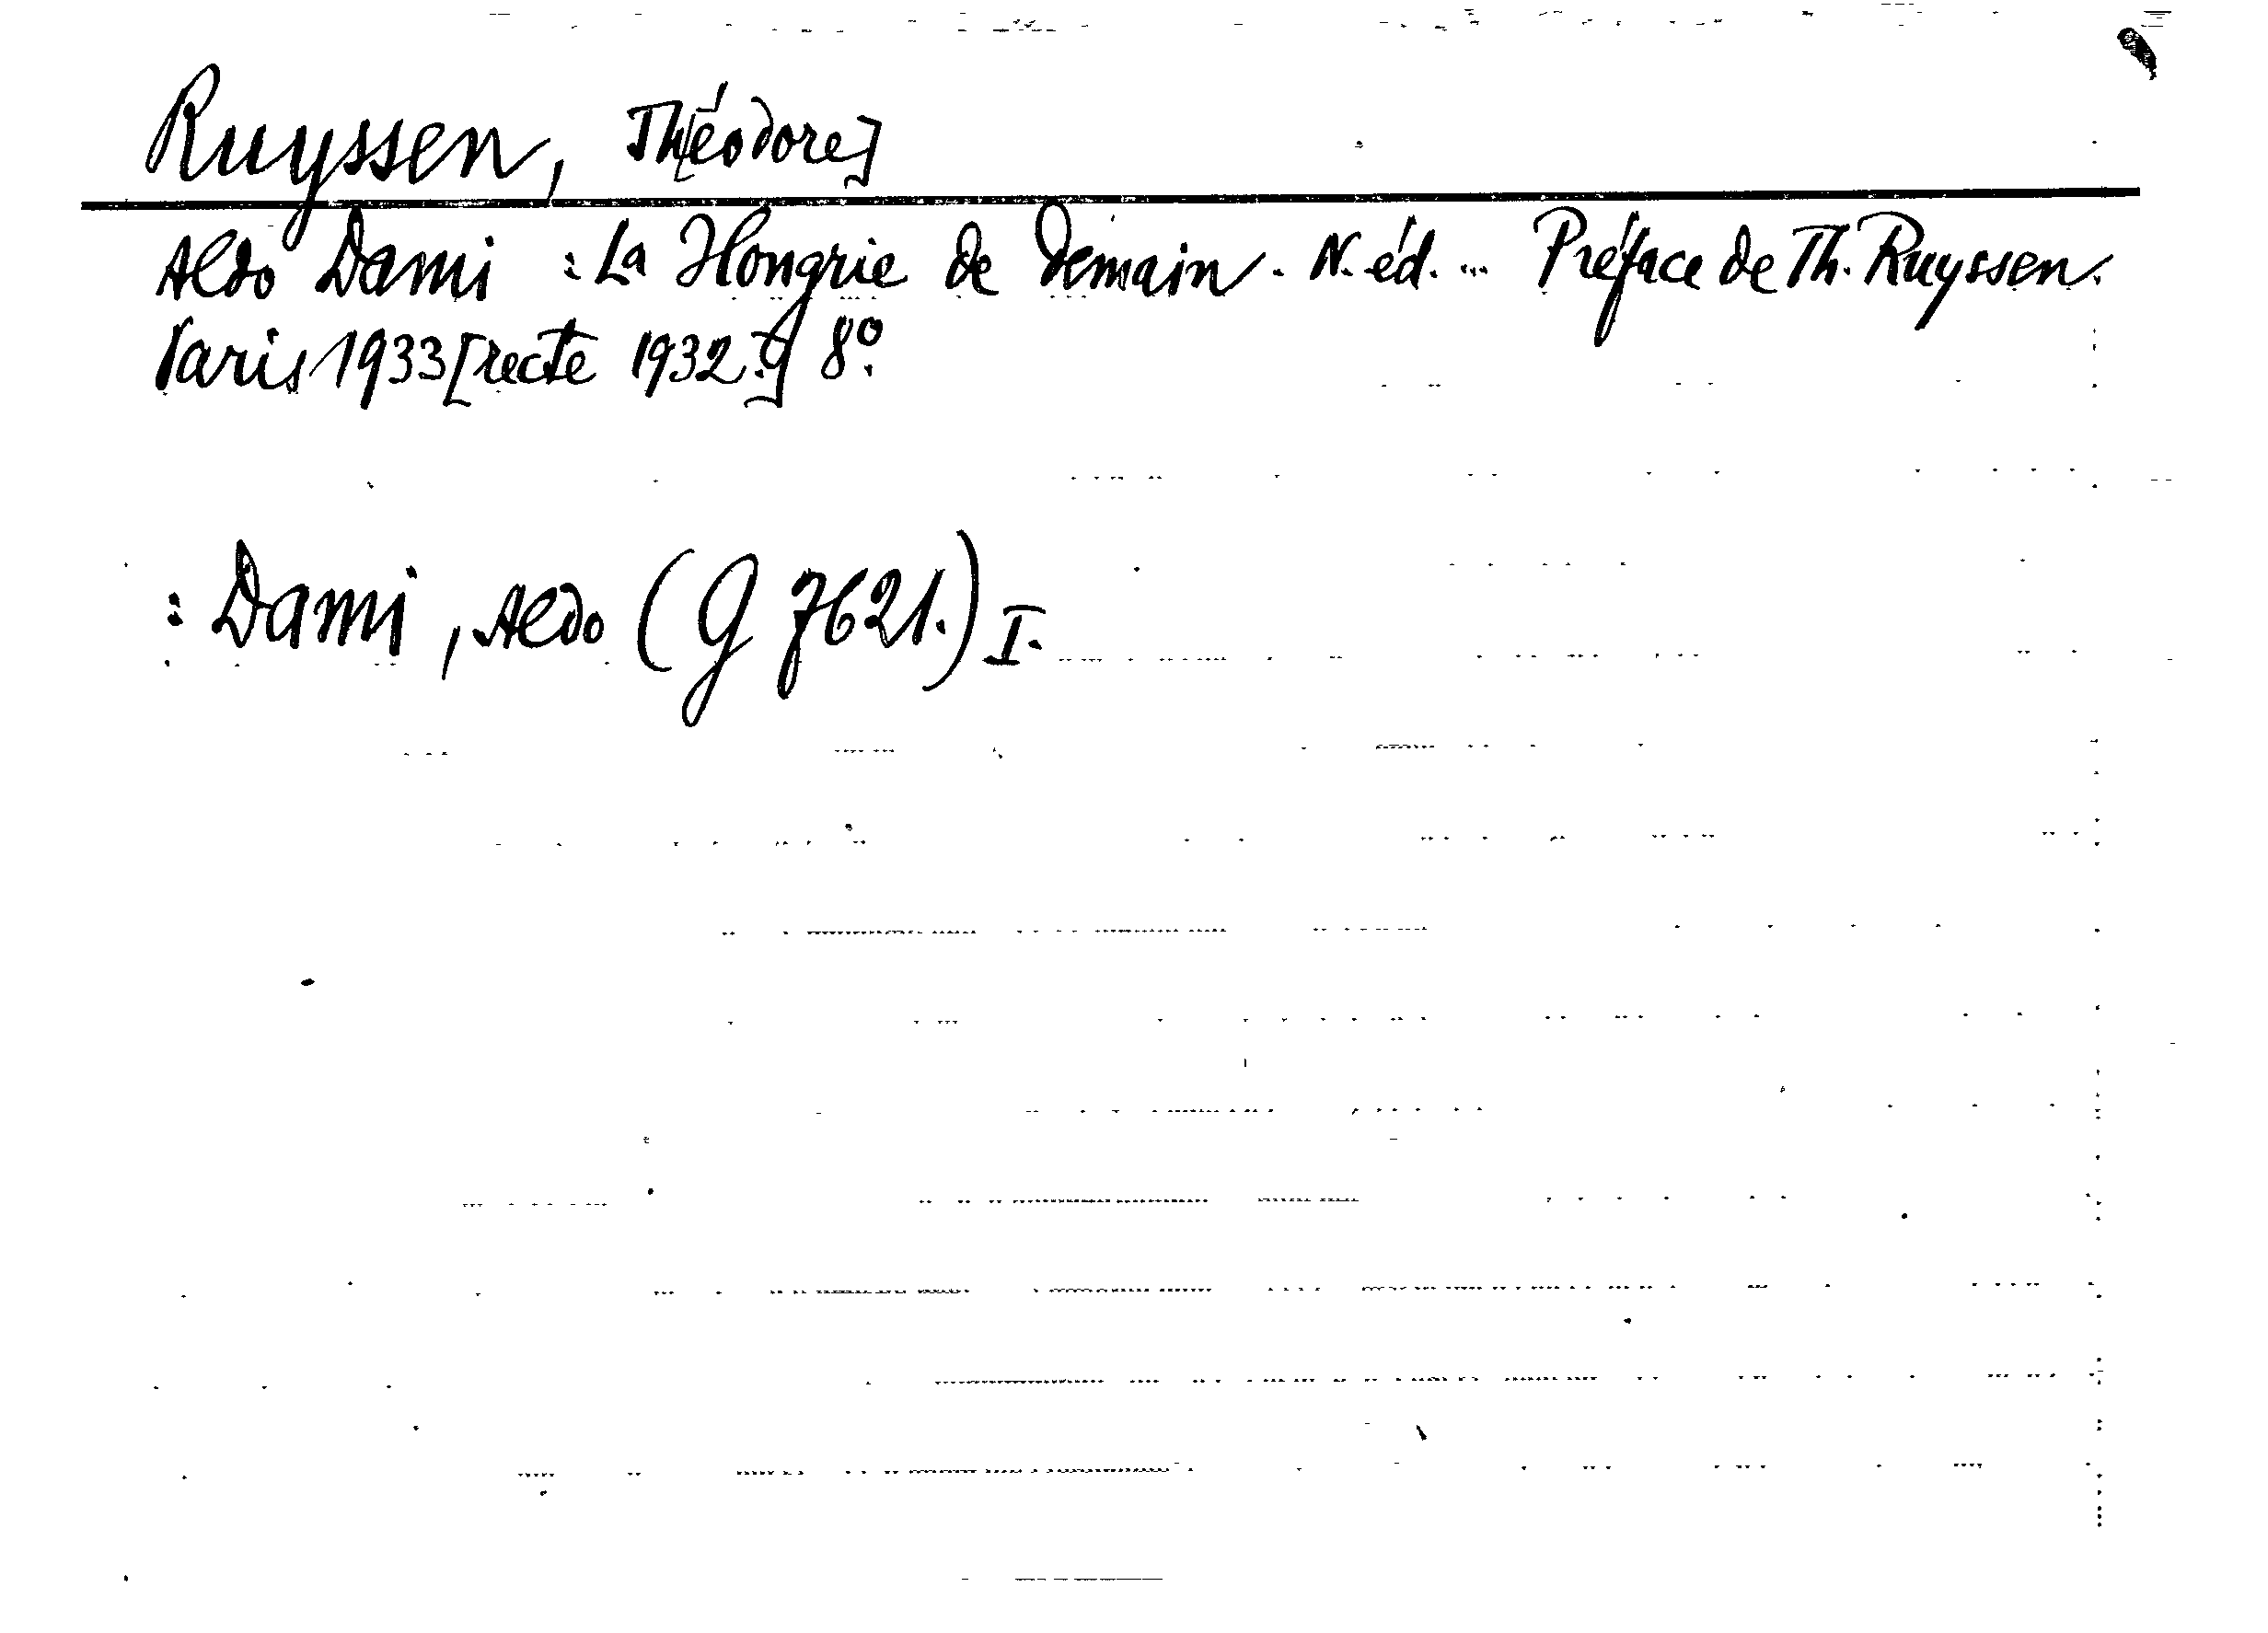 Ruyssen, Th[éodore]
Aldo Dami : La Hongrie de demain. N. éd. ... Préface de Th. Ruyssen.
Paris 1933 [recte 1932.] 8º.
: Dami, Aldo (G 7621.) I.